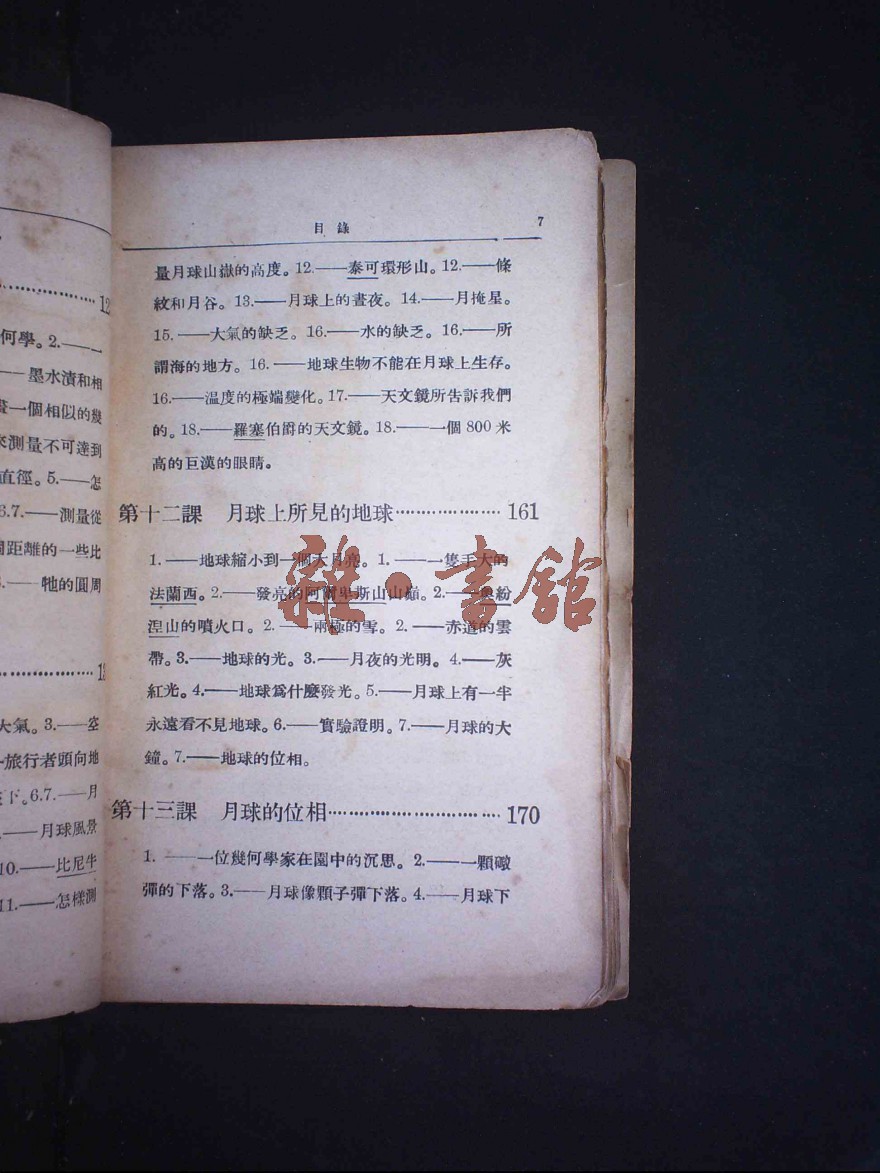 何學。2.——一
——墨水漬和相
畫一個相似的幾
來測量不可達到
直徑。5.——怎
6.7.——測量從
間距離的一些比
——牠的圓周
大氣。3.——空
旅行者頭向地
下。6.7.——月
——月球風景
10.——比尼牛
11.——怎樣測
目錄 7
量月球山嶽的高度。12.——泰可環形山。12.——條
紋和月谷。13.——月球上的晝夜。14.——月掩星。
15.——大氣的缺乏。16.——水的缺乏。16.——所
謂海的地方。16.——地球生物不能在月球上生存。
16.——温度的極端變化。17.——天文鏡所告訴我們
的。18.——羅塞伯爵的天文鏡。18.——一個800米
高的巨漢的眼睛。
第十二課 月球上所見的地球…………………161
1.——地球縮小到一個大月亮。1.——一隻手大的
法蘭西。2.——發亮的阿爾卑斯山山巔。2.——奧紛
涅山的噴火口。2.——兩極的雪。2.——赤道的雲
帶。3.——地球的光。3.——月夜的光明。4.——灰
紅光。4.——地球爲什麼發光。5.——月球上有一半
永遠看不見地球。6.——實驗證明。7.——月球的大
鐘。7.——地球的位相。
第十三課 月球的位相……………………………170
1.——一位幾何學家在園中的沉思。2.——一顆礮
彈的下落。3.——月球像顆子彈下落。4.——月球下
雜·書館